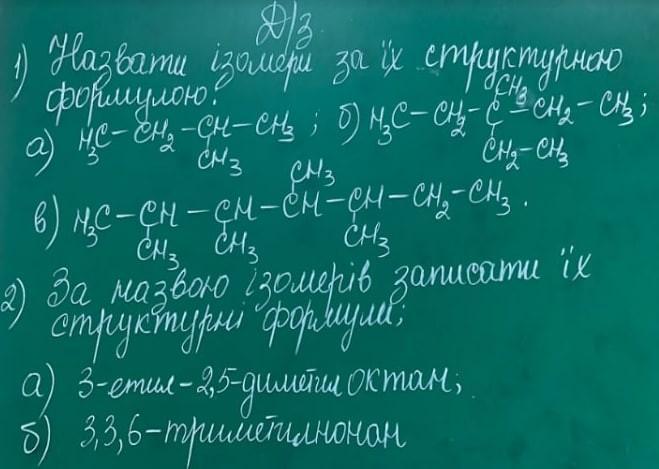 Д/з.
1) Назвати ізомери за їх структурною
формулою:
CH₃
а) H₃C – CH₂ – CH – CH₃ ; б) H₃C – CH₂ – C – CH₂ – CH₃ ;
CH₃ CH₂ – CH₃
CH₃
в) H₃C – CH – CH – CH – CH – CH₂ – CH₃ .
CH₃ CH₃ CH₃
2) За назвою ізомерів записати їх
структурні формули;
а) 3-етил-2,5-диметилоктан;
б) 3,3,6-триметилнонан